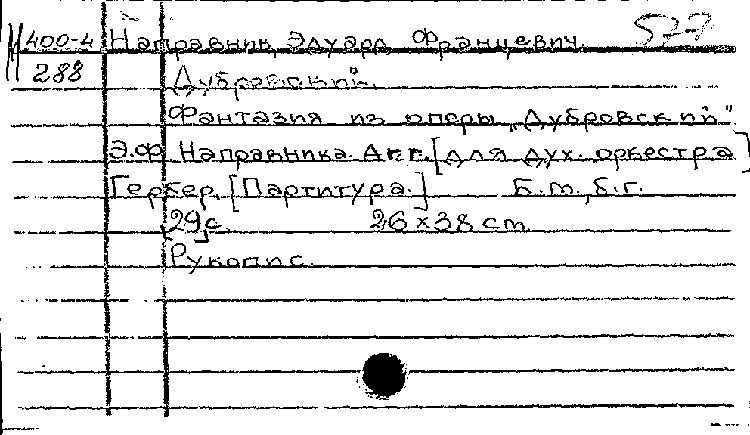 М 400-4 Направник, Эдуард Францевич. 577
288 Дубровский.
Фантазия из оперы „Дубровский"
Э.Ф. Направника. Арр. [для дух. оркестра]
Гербер. [Партитура.] Б.м., б.г.
[29]с. 26 x 38 cm
Рукопис.